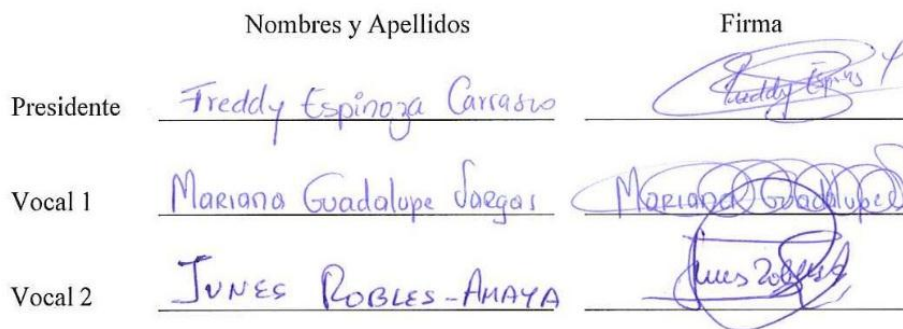 Nombres y Apellidos Firma
Presidente Freddy Espinoza Carrasco Freddy Espins
Vocal 1 Mariana Guadalupe Vargas Mariana Guadalupe
Vocal 2 JUNES ROBLES-AMAYA